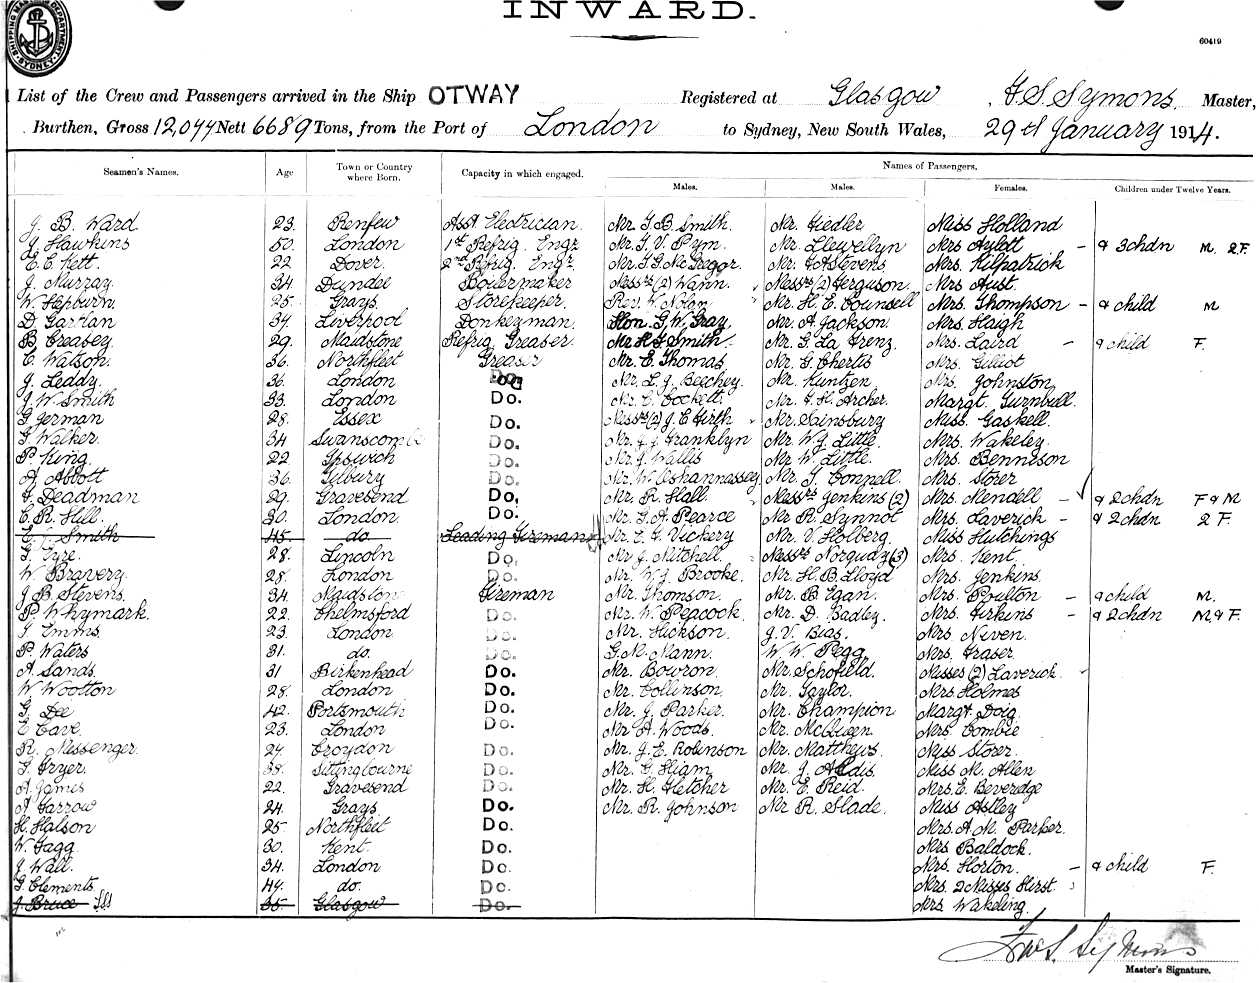 INWARD.
60419
SHIPPING MASTERS DEPARTMENT SYDNEY
List of the Crew and Passengers arrived in the Ship OTWAY Registered at Glasgow, F.S. Symons, Master,
Burthen, Gross 12,077 Nett 6689 Tons, from the Port of London to Sydney, New South Wales, 29th January 1914.
Names of Passengers.
Seamen's Names. Age Town or Country where Born. Capacity in which engaged. Males. Males. Females. Children under Twelve Years.
J. B. Ward 23. Renfew Asst Electrician. Mr. G. B. Smith. Mr. Fiedler Miss Holland
J. Hawkins 50. London 1st Refrig. Engr Mr. G. V. Pym. Mr. Llewellyn Mrs Aylott - & 3 chdn M. 2 F.
E. E. Kett. 22. Dover. 2nd Refrig. Engr. Mr. G. G. McGregor. Mr. Stevens Mrs. Kilpatrick
J. Murray. 34. Dundee Boilermaker Messrs (2) Wann. Messrs (2) Ferguson. Mrs Aust.
W. Hepburn. 25. Grays. Storekeeper. Rev. W. Nolan Mr. H. E. Counsell Mrs. Thompson - & child M
D. 34. Liverpool Donkeyman. Hon. G. W. Gray, Mr. A. Jackson. Mrs. Haigh
B. Creasey. 29. Maidstone Refrig. Greaser. Mr H G Smith. Mr. G. La Mrs. Laird - & child F.
C. Watson. 36. Northfleet Greaser Mr. E. Thomas. Mr. G. Mrs.
J. Leddy. 36. London Do. Mr. L. J. Beechey. Mr. Kuntzen Mrs. Johnston
J. W. Smith 33. London Do. Mr. C. Cockett. Mr. F. H. Archer. Margt. Turnbull.
G. German 28. Essex Do. Messrs (2) J. E. Firth Mr. Sainsbury Miss. Gaskell.
G. Walker. 34 Swanscombe Do. Mr. J. J. Franklyn Mr. W. J. Little. Mrs. Wakeley.
P. King 22. Ipswich Do. Mr. J. Wallis Mr. W. Little. Mrs. Bennison
A. Abbott 36. Tilbury Do. Mr. W. Oshannassey Mr. J. Connell. Mrs. Storer
F. Deadman 29. Gravesend Do. Mr. R. Hall. Messrs Jenkins (2) Mrs. Mendell - & 2 chdn F & M
C. R. Hill. 30. London. Do. Mr. G. A. Pearce Mr. R. Synnot Mrs. Laverick - & 2 chdn 2 F.
E. J. Smith 45. do. Leading Fireman Mr. E. G. Vickery Mr. V. Holberg. Miss Hutchings
G. Tyre. 28. Lincoln Do. Mr J. Mitchell Messrs Norquay (3) Mrs. Kent.
W. Bravery. 28. London Do. Mr. W. J. Brooke. Mr. H. B. Lloyd Mrs. Jenkins.
J. B. Stevens. 34. Maidstone Fireman Mr. Thomson. Mr. B. Egan. Mrs. Poulton - & child M.
P. Whymark. 22. Chelmsford Do. Mr. W. Peacock. Mr. D. Badley. Mrs. Firkins - & 2 chdn M & F.
J. Emms. 23. London. Do. Mr. Hickson. J. V. Bias. Mrs Niven.
P. Waters 31. do. Do. G. M. Mann. W W Pegg. Mrs. Fraser.
A. Sands. 31 Birkenhead Do. Mr. Bowron. Mr. Schofield. Misses (2) Laverick.
W Wootton 28. London Do. Mr. Collinson. Mr. Taylor. Mrs Holmes
G. Dee 42. Portsmouth Do. Mr. J. Parker. Mr. Champion Margt. Doig.
E. Cave. 23. London Do. Mr A. Woods. Mr. McQueen Mrs. Combie
R. Messenger. 24. Croydon Do. Mr. J. E. Robinson Mr. Matthews. Miss Storer.
G. Fryer. 38. Sittingbourne Do. Mr. G. Hiam Mr. J. Aldis. Miss M. Allen
A. James 22. Gravesend Do. Mr. H. Fletcher Mr. E. Reid. Mrs. E. Beveridge
A. Farrow 24. Grays. Do. Mr. R. Johnson Mr R. Slade. Miss Astley
H. Halson 25. Northfleet Do. Mrs. A. M. Parker.
W. Fagg. 30. Kent. Do. Mrs Baldock.
J. Wall. 34. London Do. Mrs. Horton. - & child F.
G. Clements 44. do. Do. Mrs. 2 Misses Hirst.
J. Bruce 35. Glasgow Do. Mrs Wakeling.
F. S. Symons
Master's Signature.